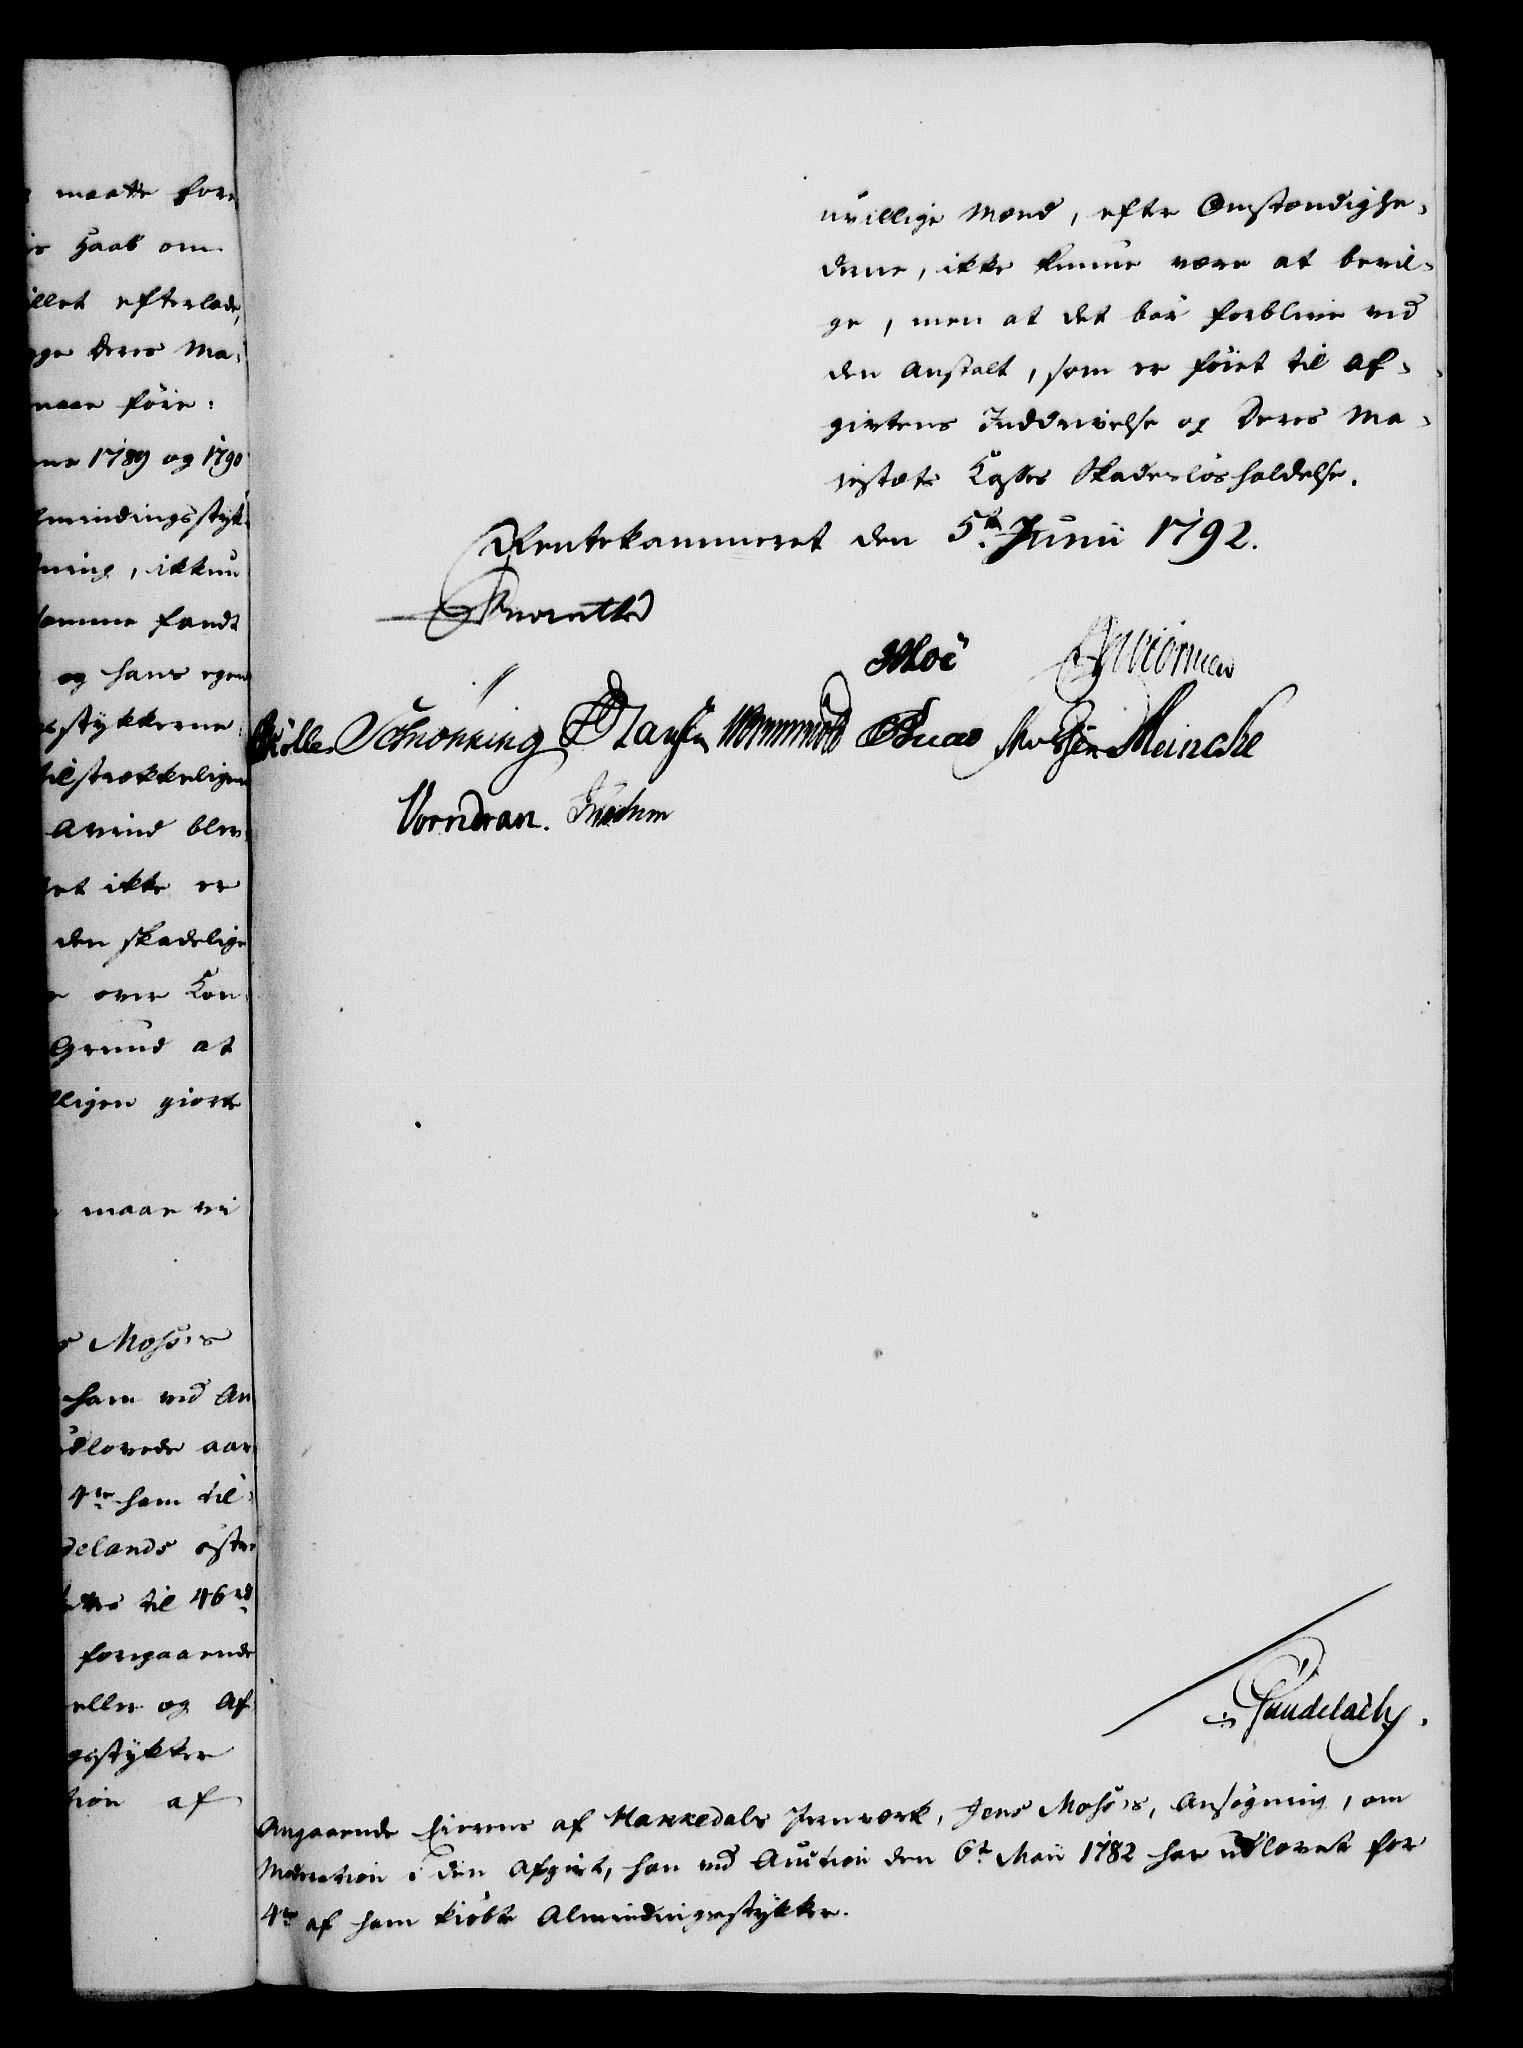 maatte fore
Haab om
efterlade,
Deres Ma-
naar före:
1789 og 1790
mindingsstyk-
ikkun
samme fandt
og hans egen
stykkerne
tilstrækkeligen
Avind blev
et ikke er
den skadelige
over Kon-
Grund at
lligen giorte
maae vi
Moses
ham ved Au
udlovede aar
4re ham til-
delands
til 46 rd
foregaaende
eller og Af
gsstykker
tion af
uvillige Mænd, efter Omstændighe-
derne, ikke kunne være at bevil-
ge, men at det bör forblive ved
den Anstalt, som er föiet til Af-
givtens Inddrivelse og Deres Ma-
jestæts Casses Skadeslösholdelse.
Rentekammeret den 5te Junii 1792.
Moe
Schönning Wormskiold Meincke
Vorndran.
Rüdelach.
Angaaende Eieren af Hakkedals Jernværk, Jens Moses, Ansögning, om
Moderation i den Afgivt, han ved Auction den 6te Maii 1782 har udlovet for
4re af ham kiöbte Almindingsstykker.